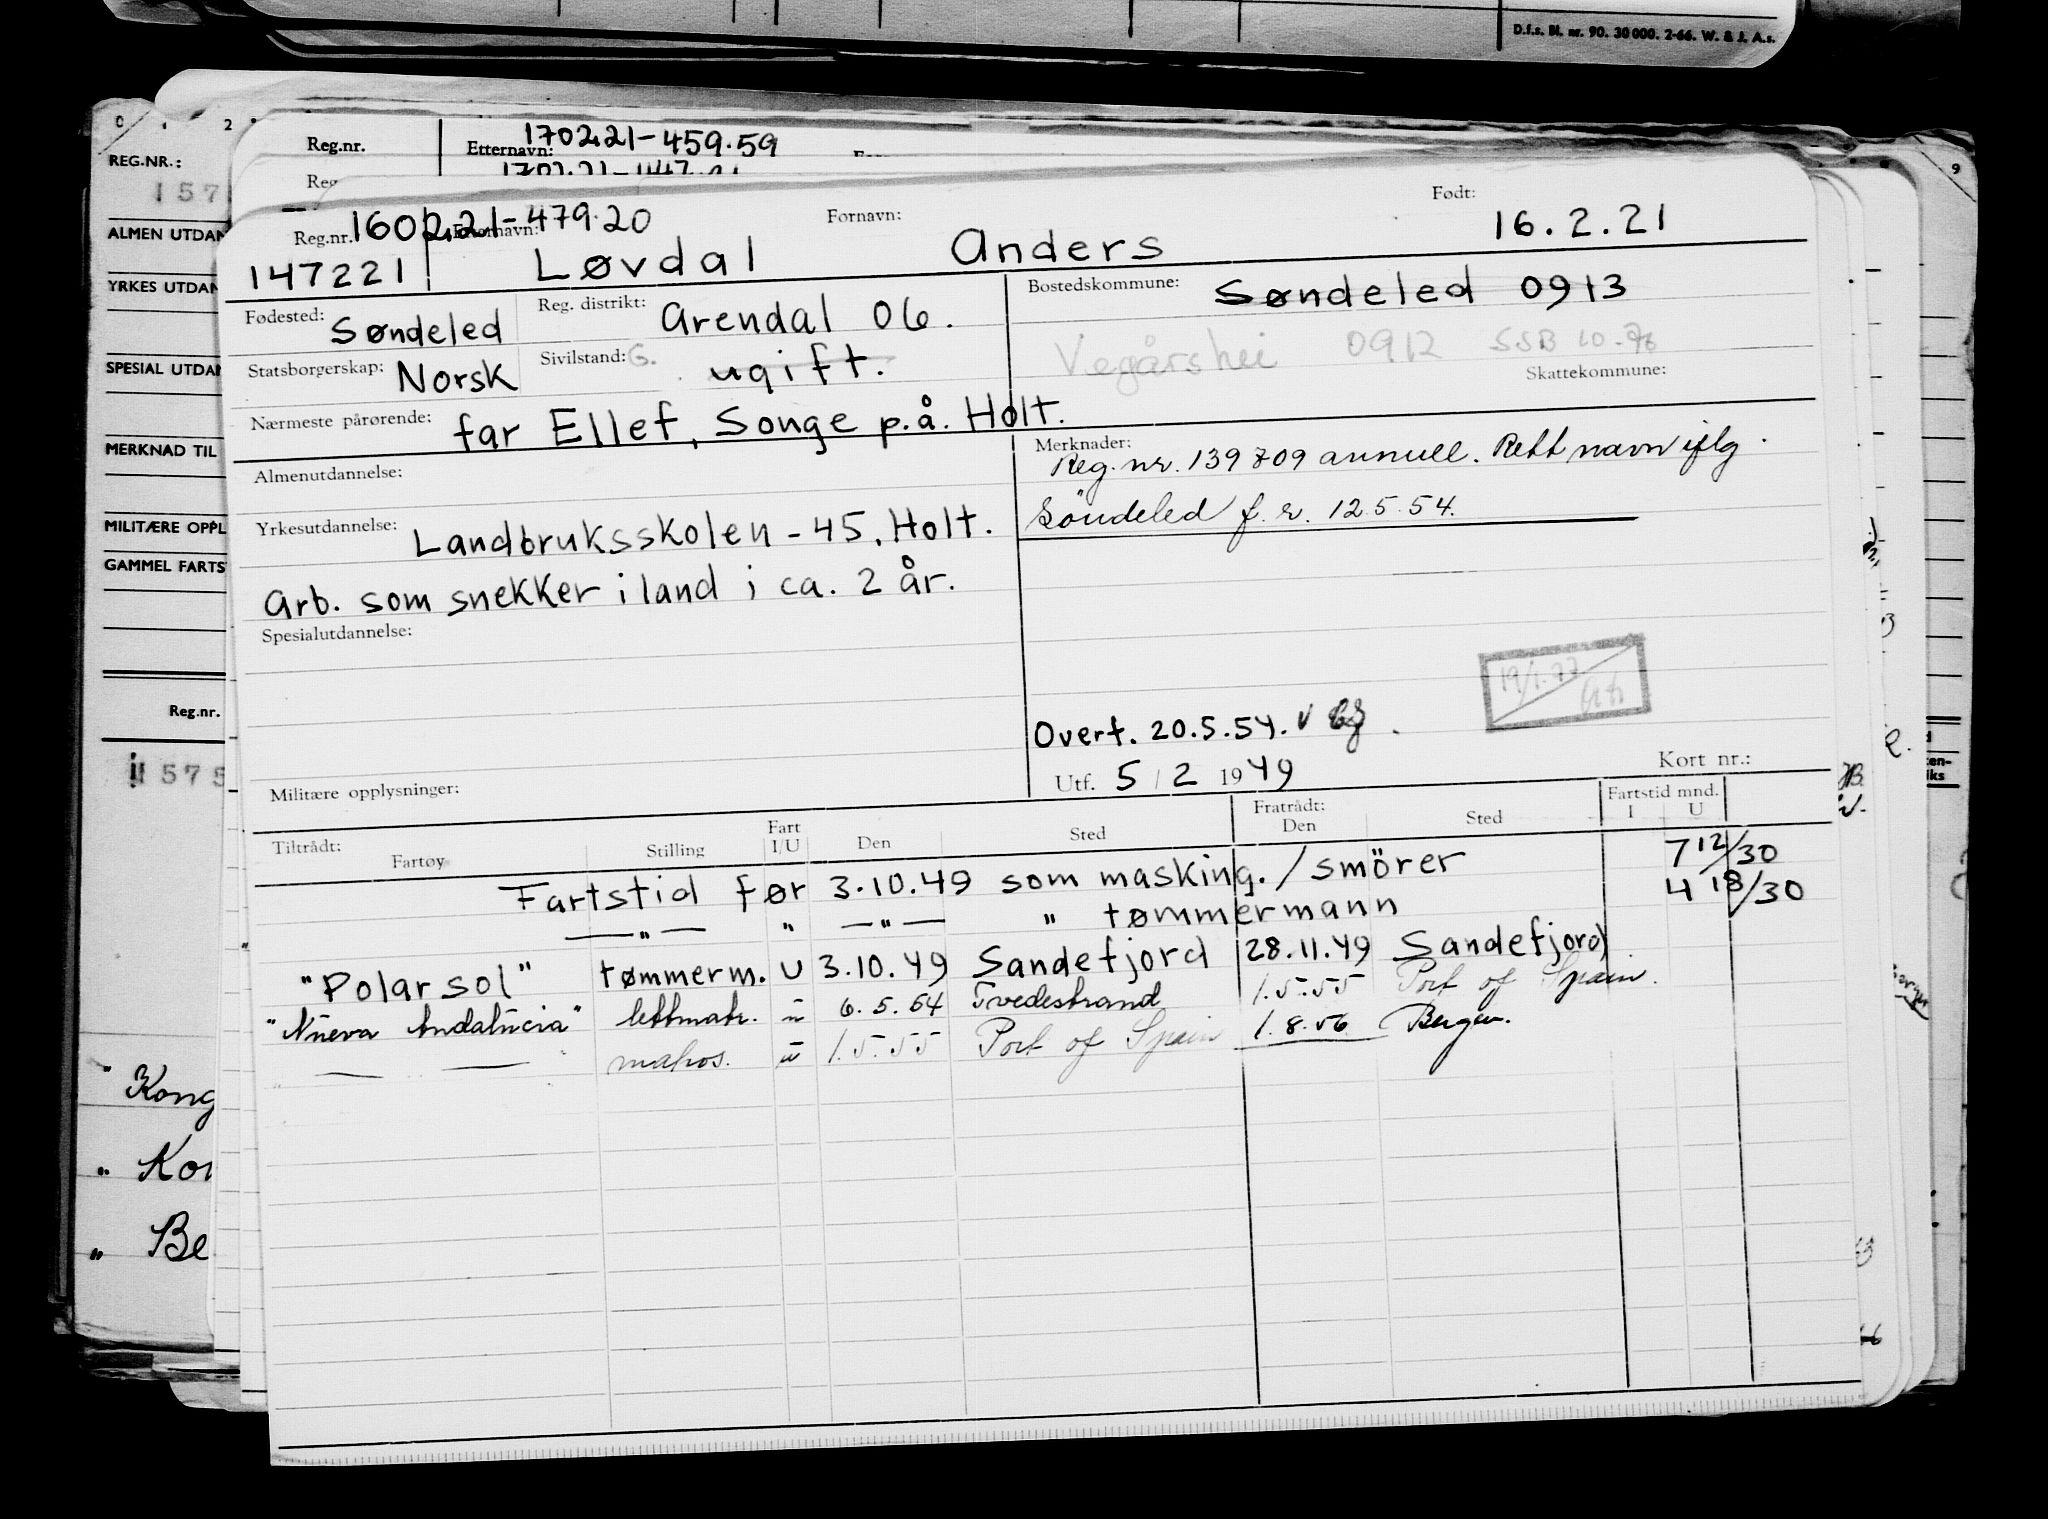 D.f.s. Bl. nr. 90. 30 000. 2-66. W. & J. A.s.
0 1 2
9
REG.NR.:
157
ALMEN UTDAN
YRKES UTDAN
SPESIAL UTDAN
MERKNAD TIL
MILITÆRE OPPL
GAMMEL FARTS
Reg.nr.
1575
" Kong
" Kon
" Be
Reg.nr. Etternavn: 170221-459.59
Reg
Reg.nr. 160221-479.20 Etternavn: Fornavn: Født:
147221 Løvdal Anders 16.2.21
Fødested: Søndeled Reg. distrikt: Arendal 06. Bostedskommune: Søndeled 0913
Statsborgerskap: Norsk Sivilstand: G. ugift. Vegårshei 0912 SSB 10-76
Skattekommune:
Nærmeste pårørende: far Ellef, Songe p.å. Holt.
Almenutdannelse:
Merknader: Reg. nr. 139709 annull. Rett navn iflg
Söndeled f. r. 12.5.54.
Yrkesutdannelse: Landbruksskolen - 45, Holt.
Arb. som snekker i land i ca. 2 år.
Spesialutdannelse:
19/1-77
Overt. 20.5.54. v
Militære opplysninger: Utf. 5 / 2 1949 Kort nr.:
Tiltrådt: Fartøy Stilling Fart I/U Den Sted Fratrådt: Den Sted Fartstid mnd. I U
Fartstid før 3.10.49 som masking./smörer 7 12/30
— " — " — " — " tømmermann 4 18/30
"Polarsol" tømmerm. U 3.10.49 Sandefjord 28.11.49 Sandefjord
"Nueva Andalucia" lettmatr. u 6.5.54 Tvedestrand 1.5.55 Port of Spain.
— " — matros. u 1.5.55 Port of Spain 1.8.56 Bergen.